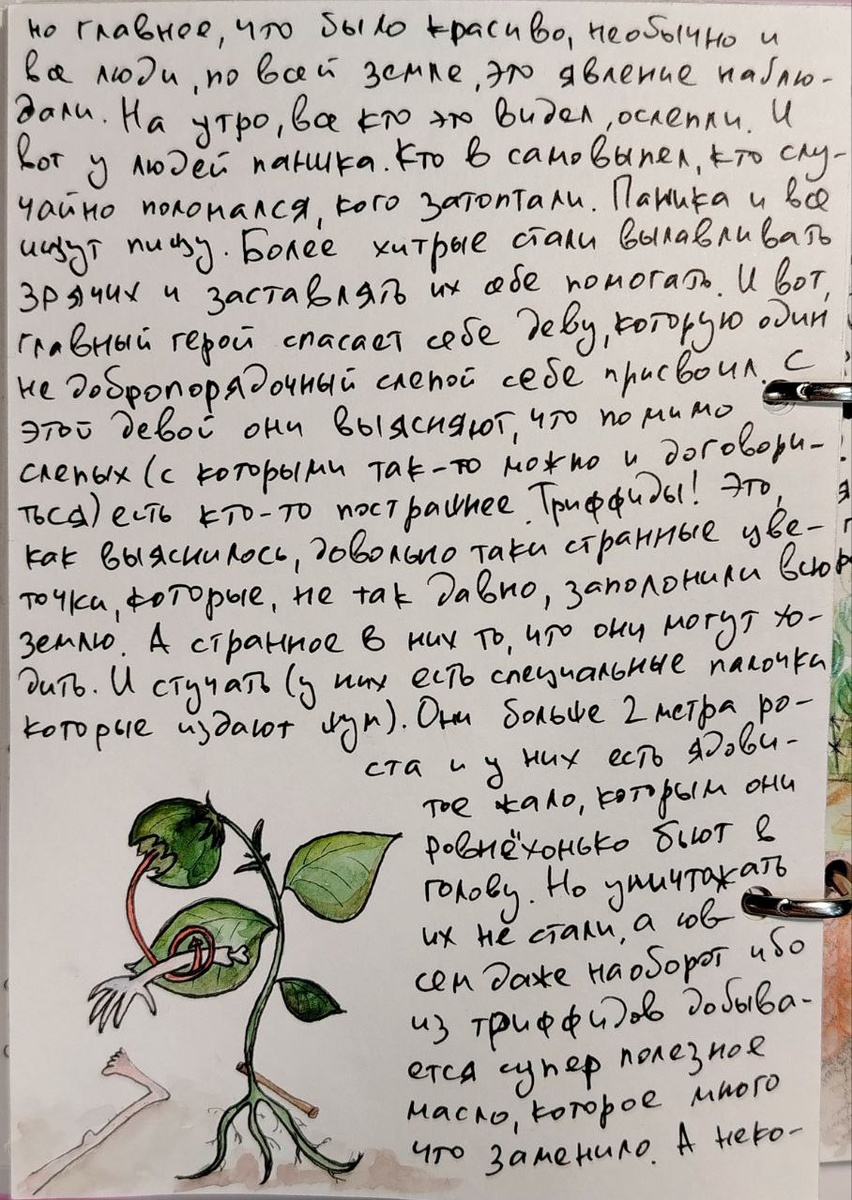 но главное, что было красиво, необычно и
все люди, по всей земле, это явление наблю-
дали. На утро, все кто это видел, ослепли. И
вот у людей паника. Кто в самовыпел, кто слу-
чайно поломался, кого затоптали. Паника и все
ищут пищу. Более хитрые стали вылавливать
зрячих и заставлять их себе помогать. И вот,
главный герой спасает себе деву, которую один
не добропорядочный слепой себе присвоил. С
этой девой они выясняют, что помимо
слепых (с которыми так-то можно и договори-
ться) есть кто-то пострашнее. Триффиды! Это,
как выяснилось, довольно таки странные цве-
точки, которые, не так давно, заполонили всю
землю. А странное в них то, что они могут хо-
дить. И стучать (у них есть специальные палочки
которые издают шум). Они больше 2 метра ро-
ста и у них есть ядови-
тое жало, которым они
ровнёхонько бьют в
голову. Но уничтожать
их не стали, а сов-
сем даже наоборот ибо
из триффидов добыва-
ется супер полезное
масло, которое много
что заменило. А неко-